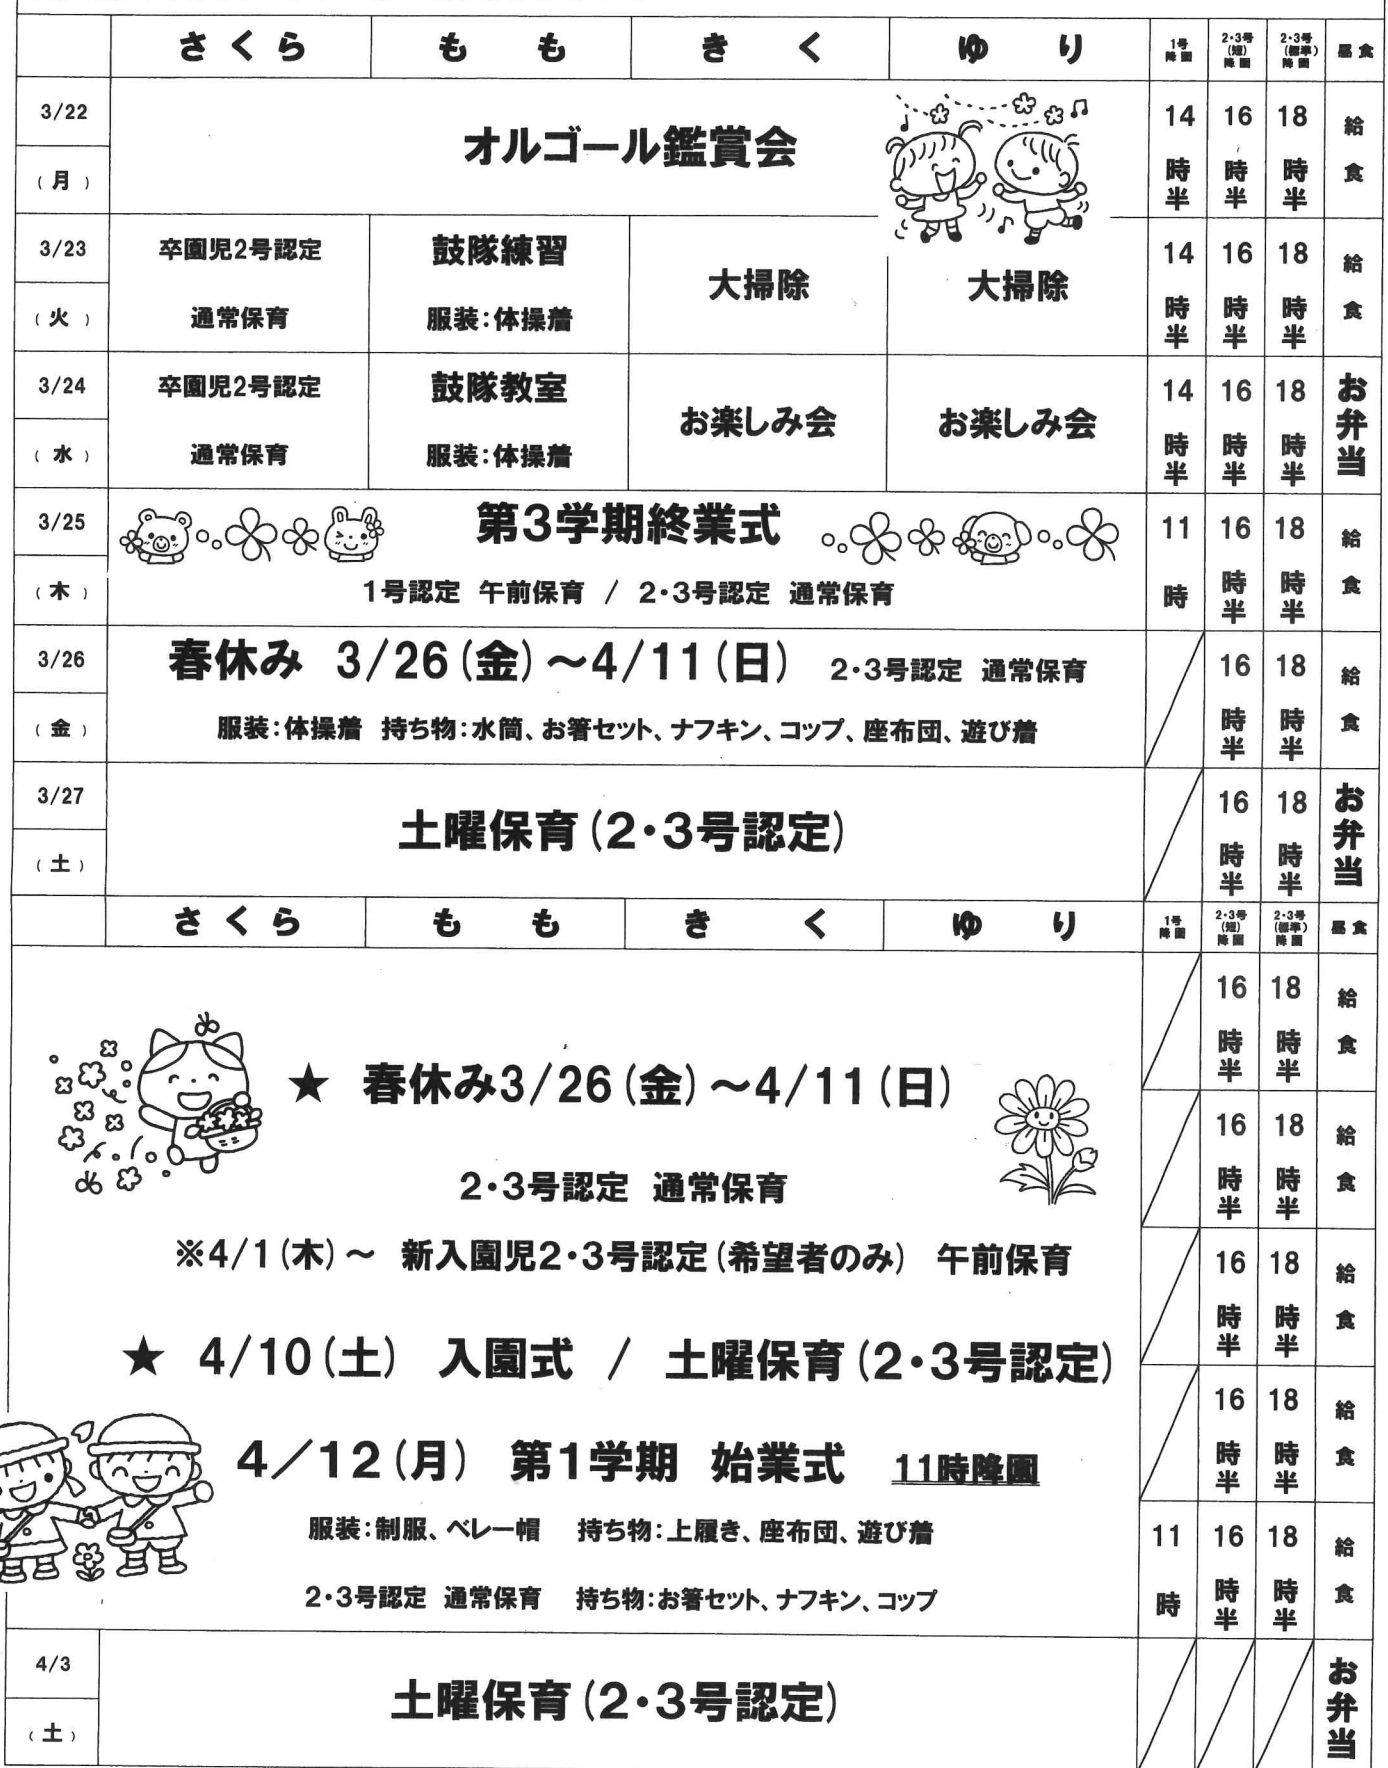 さくら もも きく ゆり 1号降園 2・3号(短)降園 2・3号(標準)降園 昼食
3/22 (月) オルゴール鑑賞会 14時半 16時半 18時半 給食
3/23 (火) 卒園児2号認定 通常保育 鼓隊練習 服装:体操着 大掃除 大掃除 14時半 16時半 18時半 給食
3/24 (水) 卒園児2号認定 通常保育 鼓隊教室 服装:体操着 お楽しみ会 お楽しみ会 14時半 16時半 18時半 お弁当
3/25 (木) 第3学期終業式 11時 16時半 18時半 給食
1号認定 午前保育 / 2・3号認定 通常保育
3/26 (金) 春休み 3/26(金)~4/11(日) 2・3号認定 通常保育 16時半 18時半 給食
服装:体操着 持ち物:水筒、お箸セット、ナフキン、コップ、座布団、遊び着
3/27 (土) 土曜保育(2・3号認定) 16時半 18時半 お弁当
さくら もも きく ゆり 1号降園 2・3号(短)降園 2・3号(標準)降園 昼食
16時半 18時半 給食
★ 春休み3/26(金)~4/11(日)
16時半 18時半 給食
2・3号認定 通常保育
※4/1(木)~ 新入園児2・3号認定(希望者のみ) 午前保育
16時半 18時半 給食
★ 4/10(土) 入園式 / 土曜保育(2・3号認定)
16時半 18時半 給食
4/12(月) 第1学期 始業式 11時降園
服装:制服、ベレー帽 持ち物:上履き、座布団、遊び着
11時 16時半 18時半 給食
2・3号認定 通常保育 持ち物:お箸セット、ナフキン、コップ
4/3 (土) 土曜保育(2・3号認定) お弁当